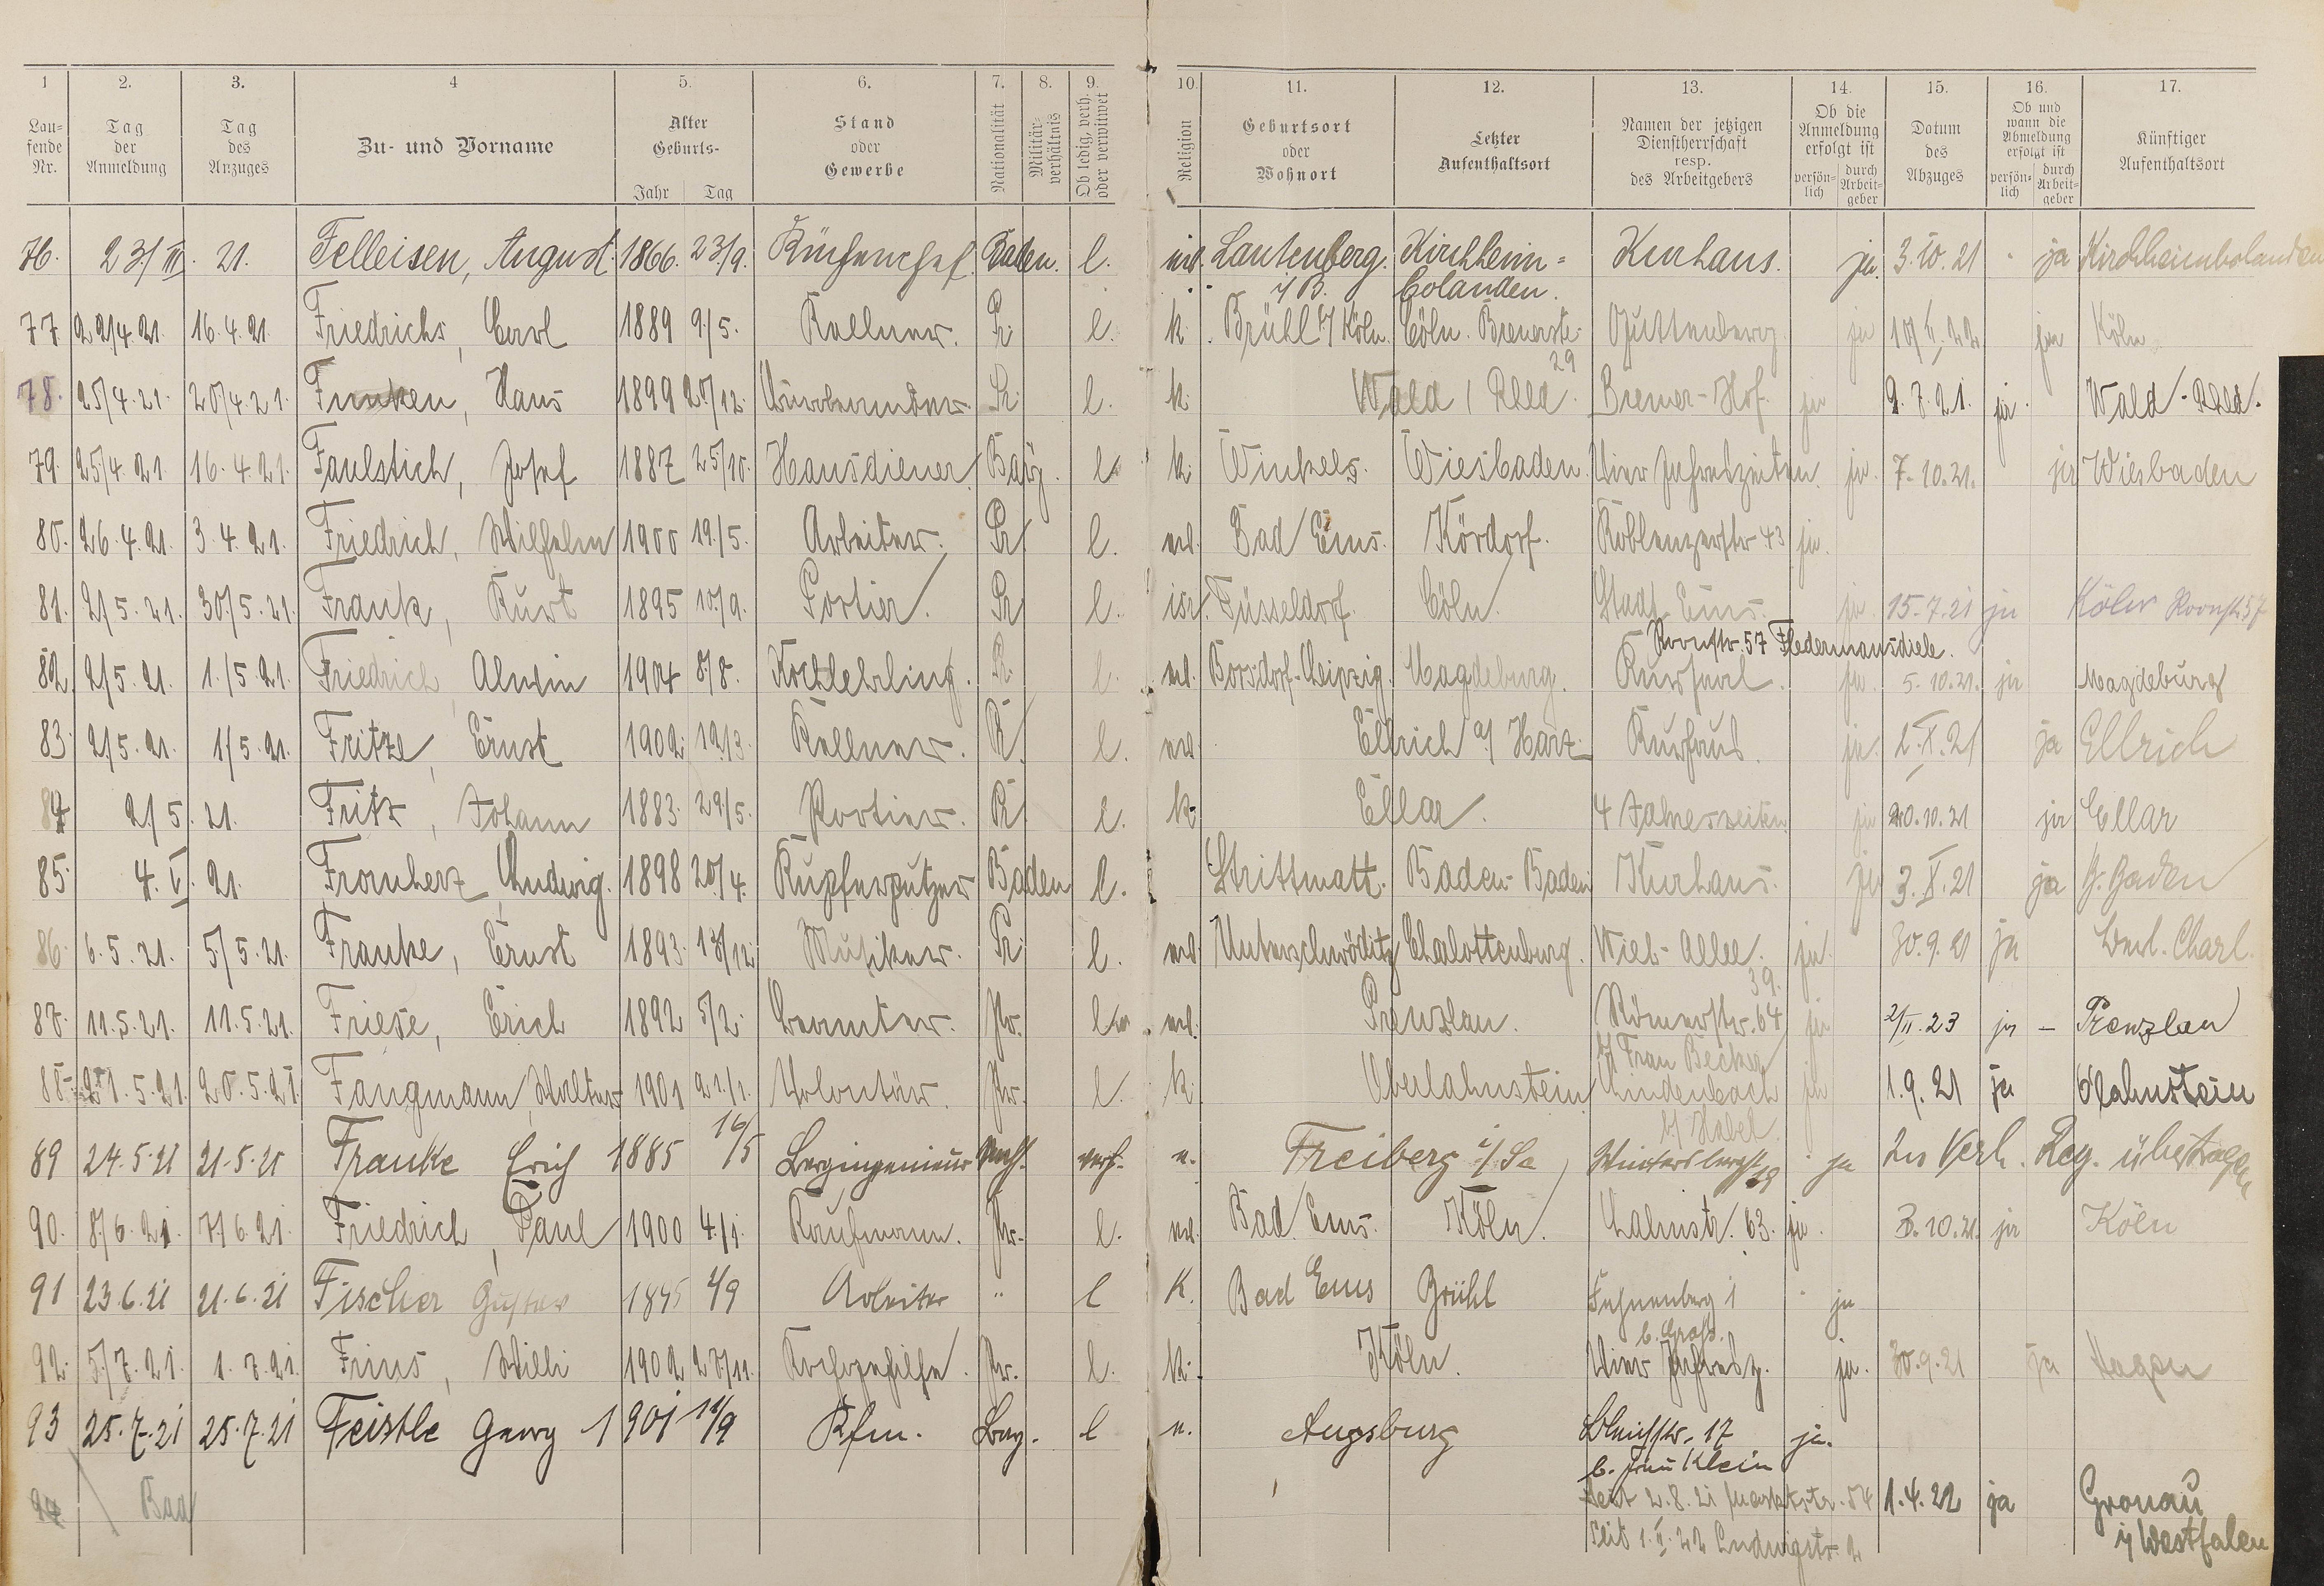 1 2. 3. 4 5. 6. 7. 8. 9. 10. 11. 12. 13. 14. 15. 16. 17.
Lau-fende Nr. Tag der Anmeldung Tag des Anzuges Zu- und Vorname Alter Geburts- Jahr Tag Stand oder Gewerbe Nationalität Militär-verhältnis Ob ledig, verh. oder verwitwet Religion Geburtsort oder Wohnort Letzter Aufenthaltsort Namen der jetzigen Dienstherrschaft resp. des Arbeitgebers Ob die Anmeldung erfolgt ist persön-lich durch Arbeit-geber Datum des Abzuges Ob und wann die Abmeldung erfolgt ist persön-lich durch Arbeit-geber Künftiger Aufenthaltsort
76. 23/III. 21. Felleisen, August. 1866. 23/9. Küchenchef. Baden. l. Lautenberg. Kirchheim= Kurhaus. ja. 3.10.21 ja Kirchheimbolanden
i/B. bolanden.
77 22/4.21. 16.4.21. Friedrichs, Carl 1889 9/5. Kellner. Pr. l. k. Brühl b/ Köln. Cöln. Guttenberg ja ja Köln
29
78. 25/4.21. 20/4.21. Funken, Hans 1899 Pr. l. k. Wald / Rhld. Bremer-Hof. ja 2.7.21. ja. Wald-Rhld.
79. 25/4.21 16.4.21. Faulstich, Josef 1887 25/10. Hausdiener l. k. Winkels. Wiesbaden. Vier Jahreszeiten. ja. 7.10.21. ja Wiesbaden
80. 26.4.21. 3.4.21. Friedrich, Wilhelm 1900 19/5. Arbeiter. Pr. l. evl. Bad Ems. Kördorf. Koblenzerstr 43 ja.
81. 2/5.21. 30/5.21. Frank, Kurt 1895 10/9. Portier. Pr l. isr. Düsseldorf. Cöln. Stadt Ems. ja. 15.7.21 ja Köln Roonstr 57
Roonstr. 57 Fledermausdiele.
82. 2/5.21. 1./5.21. Friedrich Alwin 1904 8/8. Kochlehrling. Pr. l. evl. Borsdorf-Leipzig. Magdeburg. Kursaal. ja. 5.10.21. ja Magdeburg
83. 2/5.21. 1/5.21. Fritze, Ernst 1902 Kellner. Pr. l. evl. Ellrich a/ Harz Kurhaus. ja. 2.X.21 ja Ellrich
84 2/5.21. Fritz, Johann 1883. 29/5. Portier. Pr. l. k. Ellar. 4 Jahreszeiten ja 20.10.21 ja Ellar
85. 4.V.21. Fromherz Ludwig. 1898 20/4. Kupferputzer Baden l. Strittmatt. Baden-Baden Kurhaus. ja 3.X.21 ja B. Baden
86. 6.5.21. 5/5.21. Franke, Ernst 1893. Musiker. Pr l. evl. Unterschwöditz Charlottenburg. Wilh-Allee. ja. 30.9.21 ja Charl.
39.
87. 11.5.21. 11.5.21. Friese, Erich 1892 5/2. Beamter. Pr. evl. Prenzlau. Römerstr. 64 ja 2/II.23 ja - Prenzlau
b/ Frau Becker
88 21.5.21. 20.5.21 Fangmann, Walter 1901 21./1. Volontär. Pr. l. k. Oberlahnstein Lindenbach ja 1.9.21 ja Olahnstein
b/ Habel
89 24.5.21 21.5.21 Franke Erich 1885 16/5 Bergingenieur verh. Freiberg i/Sa ja Ins Verh. Reg. übertragen
90. 8/6.21 7/6.21. Friedrich, Paul 1900 4./1. Kaufmann. Pr. l. evl. Bad Ems. Köln. Lahnstr. 63. ja. 3.10.21. ja Köln
91 23.6.21 21.6.21 Fischer Gustav Arbeiter " l K. Bad Ems Brühl ja
92. 5/7.21. 1.7.21. Frins, Willi 1902 27/11. Kochgehilfe. Pr. l. k. Köln. Vier Jahresz. ja. 30.9.21 ja Hagen
93 25.7.21 25.7.21 Feistle Georg 1901 Kfm. Bay. l Augsburg 17 ja.
b. Frau Klein
94 Bad seit 2.8.21 Marktstr. 54 1.4.22 ja Gronau
Seit 1.II.22 Ludwigstr. 2 i/ Westfalen